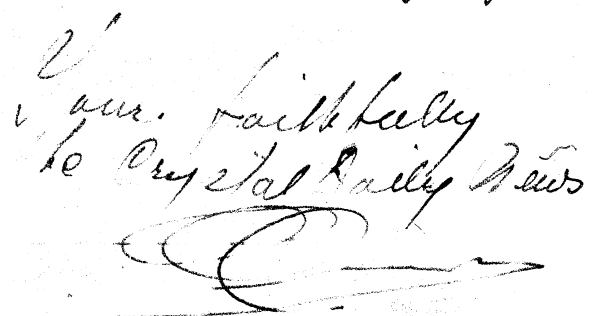 Your. faithfully
he Crystal Daily News